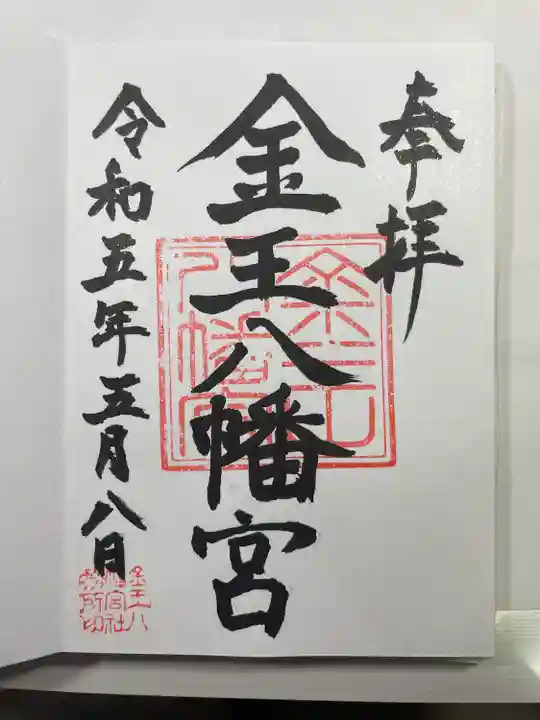 奉拝
金王八幡宮
令和五年五月八日
金王八
幡宮社
務所印